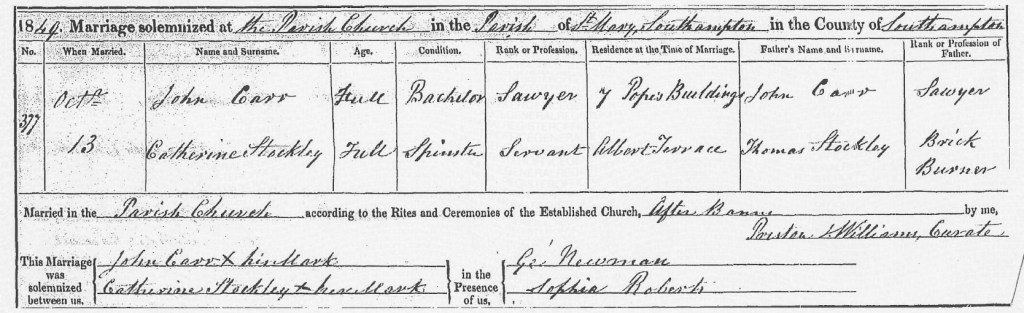 1849. Marriage solemnized at the Parish Church in the Parish of St Mary, Southampton in the County of Southampton
No. When Married. Name and Surname. Age. Condition. Rank or Profession. Residence at the Time of Marriage. Father's Name and Surname. Rank or Profession of Father.
377 Octr 13 John Carr Full Bachelor Sawyer 7 Popes Buildings John Carr Sawyer
Catherine Stockley Full Spinster Servant Albert Terrace Thomas Stockley Brick Burner
Married in the Parish Church according to the Rites and Ceremonies of the Established Church, After Banns by me,
Preston Williams, Curate
This Marriage was solemnized between us, John Carr X his Mark in the Presence of us, Geo Newman
Catherine Stockley X her Mark Sophia Roberts